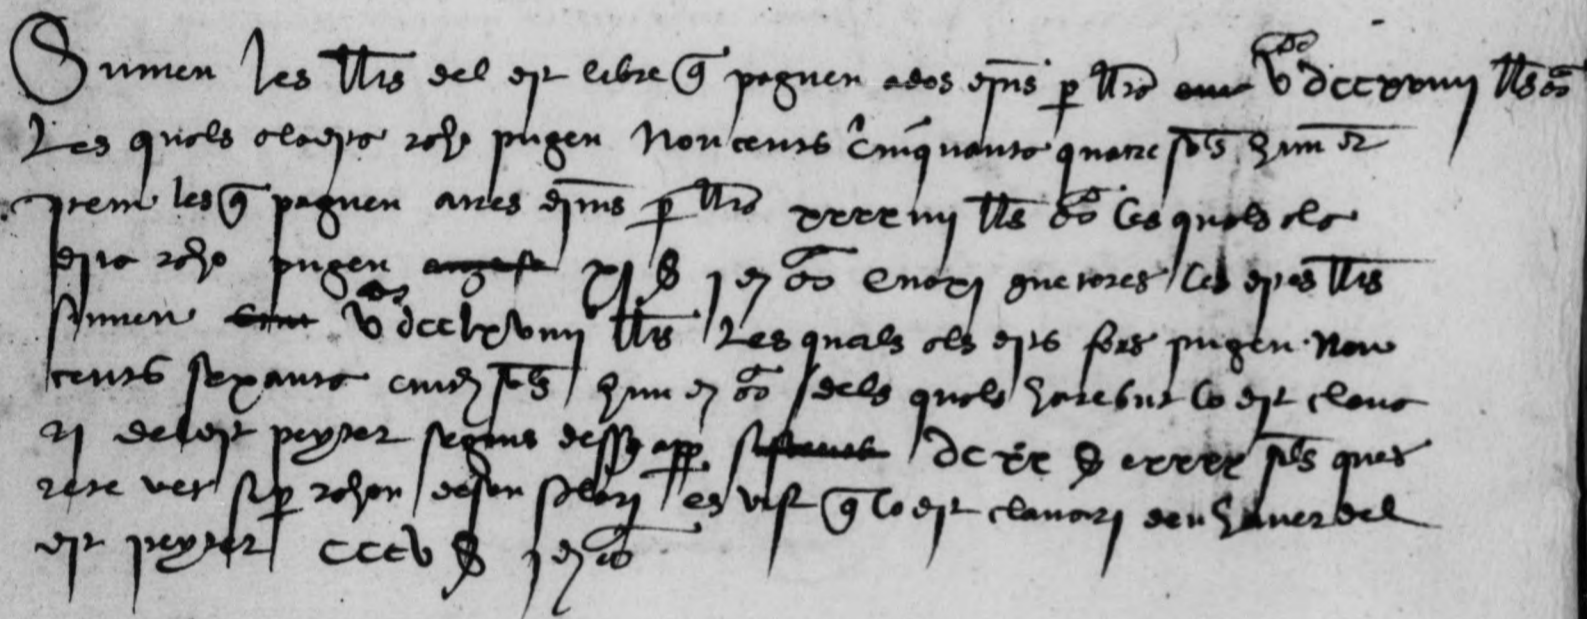 Sumen les llrs del dit libre q paguen a dos dins p llra V dccxxviiij llrs
Les quals a la dita raho pugen Nou cents cinquanta quatre sols
prem les q paguen a tres dins p llra xxxxiiij llrs les quals a la
dita raho pugen xj s j d E axi que totes les dites llrs
sumen V dcclxxviiij llrs Les quals als dits fors pugen Nou
cents sexanta cinch sols dels quals ha rebut lo dit clava
ri del dit peyrer segons dessus app sols ques
rete raho de son salari es vist q lo dit clavari deu haver del
dit peyrer cccv s j d